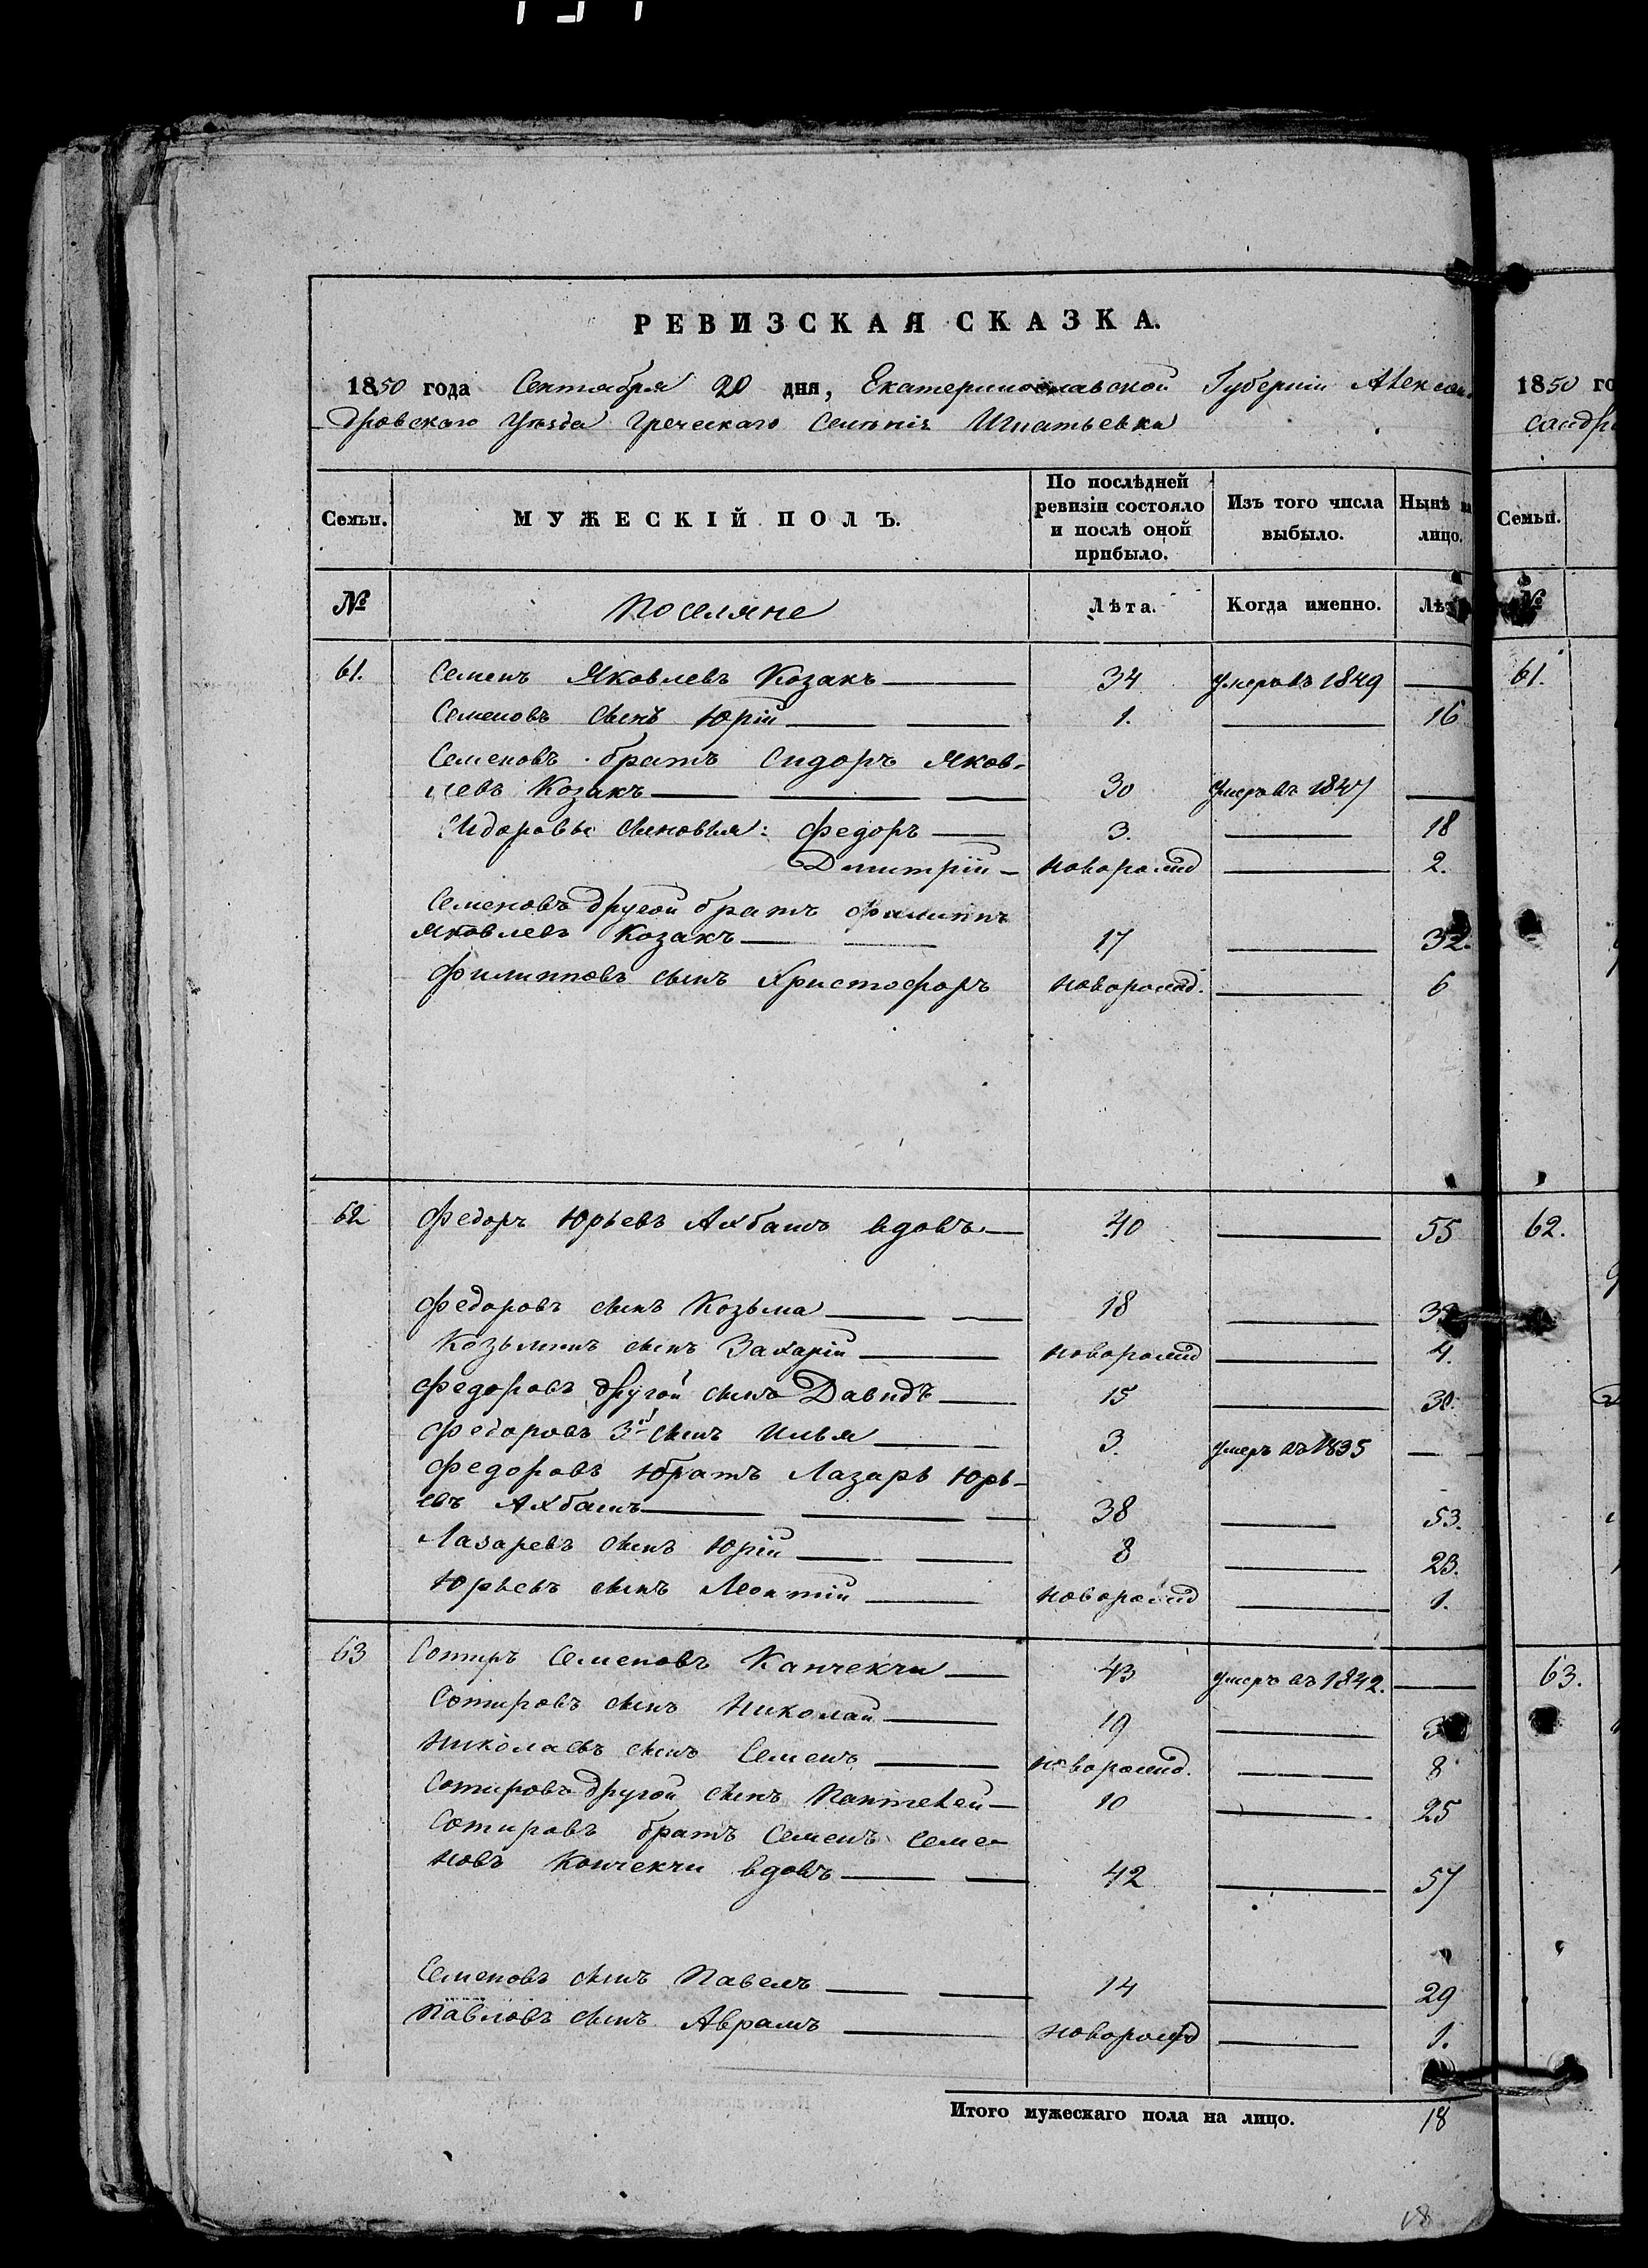 РЕВИЗСКАЯ СКАЗКА.
1850 года Сентября 20 дня, Екатеринославской Губерніи Алексан
дровского Уѣзда Греческаго Селенія Игнатьевки
1850 го
сандр
Семьи. МУЖЕСКІЙ ПОЛЪ. По послѣдней ревизіи состояло и послѣ оной прибыло. Изъ того числа выбыло. Нынѣ на лицо. Семьи.
№ Поселяне Лѣта. Когда именно. Лѣт №
61. Семенъ Яковлевъ Козакъ 34 умеръ въ 1849 61.
Семеновъ сынъ Юрій 1. 16
Семеновъ братъ Сидоръ Яков-
левъ Козакъ 30 умеръ въ 1847
Сидоровы сыновья: Федоръ 3. 18
Дмитрій новорожд 2.
Семеновъ другой братъ Филиппъ
Яковлевъ Козакъ 17 32.
Филипповъ сынъ Христофоръ новорожд. 6
62 Федоръ Юрьевъ Ахбашъ вдовъ 40 55 62.
Федоровъ сынъ Козьма 18
Козьминъ сынъ Захарій новорожд 4.
Федоровъ другой сынъ Давидъ 15 30.
Федоровъ 3й сынъ Илья 3. умеръ въ 1835
Федоровъ братъ Лазарь Юрь-
евъ Ахбашъ 38 53.
Лазаревъ сынъ Юрій 8 23.
Юрьевъ сынъ Леонтій новорожд 1.
63 Сотиръ Семеновъ Канчекчи 43 умеръ въ 1842. 63.
Сотировъ сынъ Николай 19
Николаевъ сынъ Семенъ новорожд. 8
Сотировъ другой сынъ Пантелей 10 25
Сотировъ братъ Семенъ Семе-
новъ Кончекчи вдовъ 42 57
Семеновъ сынъ Павелъ 14 29
Павловъ сынъ Аврамъ новорожд 1.
Итого мужескаго пола на лицо. 18
18